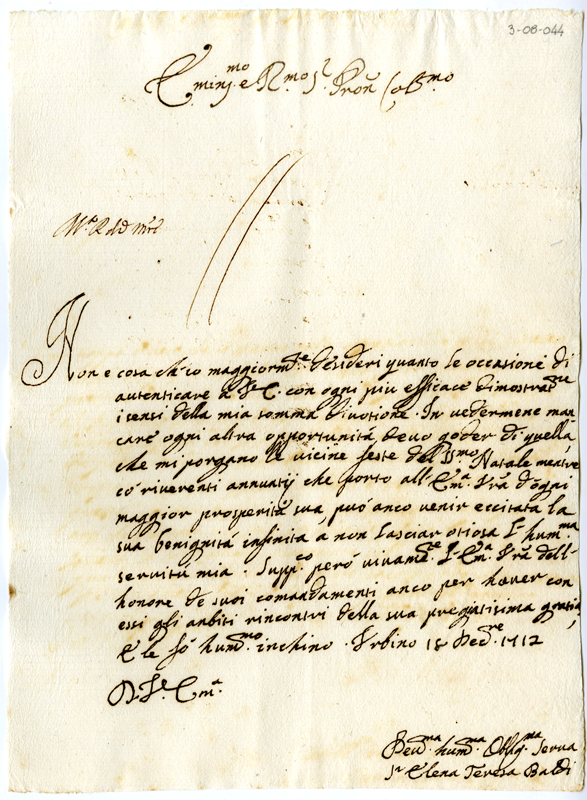 3-08-044
Emin.mo e R.mo S.r Pron Col.mo
Non e cosa ch'io maggiorm.te desideri quanto le occasione di
autenticare a V.E. con ogni piu efficace dimostrat.ne
i sensi della mia somma divotione. In vedermene man
care ogni altra opportunità, devo goder di quella,
che mi porgano le vicine feste del SS.mo Natale mentre
co' riverenti annuntij che porto all'Em.a V.ra d'ogni
maggior prosperità sua, può anco venir eccitata la
sua benignità infinita a non lasciar otiosa l'hum.ma
servitù mia. Supp.co però vivam.te l'Em.a V.ra dell'
honore de suoi comandamenti anco per haver con
essi gli ambiti rincontri della sua pregiatissima gratia,
E le fò hum.mo inchino. Urbino 18 Dec.re 1712
D. V. Em.a
Dev.ma hum.ma Oblig.ma Serva
S.r Elena Teresa Baldi